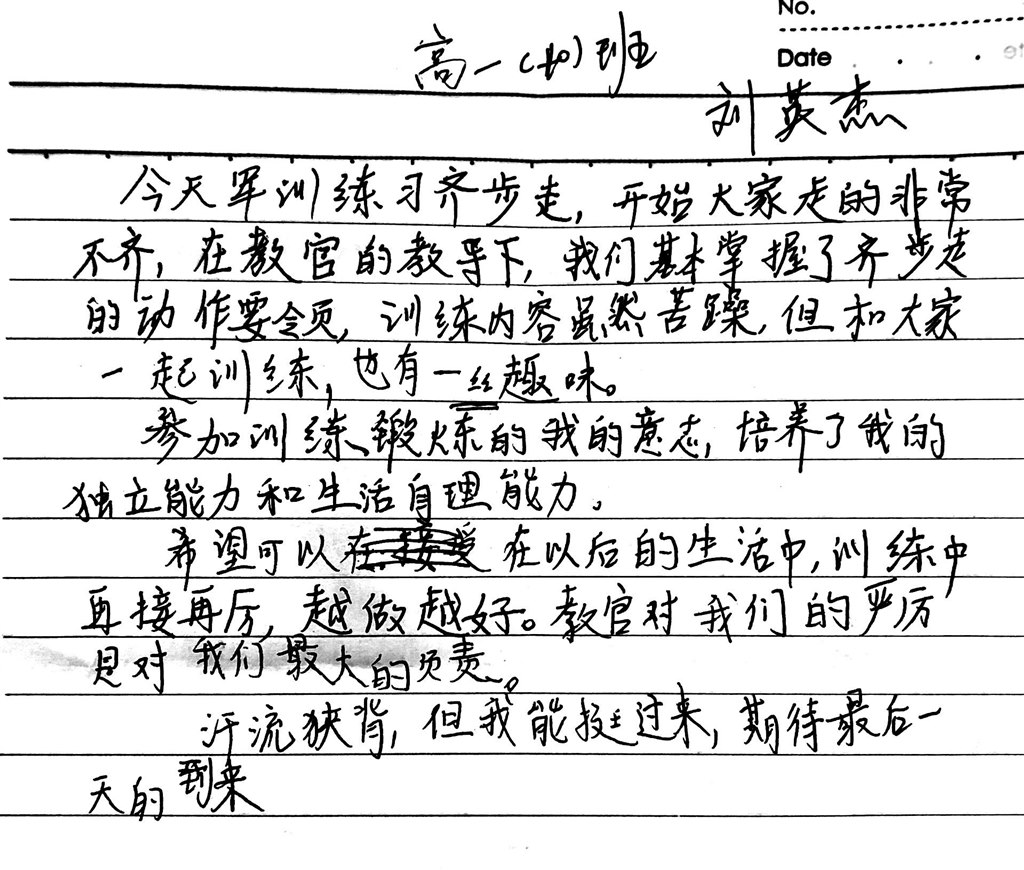 No.
Date
高一(10)班
刘英杰
今天军训练习齐步走，开始大家走的非常
不齐，在教官的教导下，我们基本掌握了齐步走
的动作要领，训练内容虽然苦躁，但和大家
一起训练，也有一丝趣味。
参加训练、锻炼的我的意志，培养了我的
独立能力和生活自理能力。
希望可以在以后的生活中，训练中
再接再厉，越做越好。教官对我们的严厉
是对我们最大的负责。
汗流狭背，但我能挺过来，期待最后一
天的到来